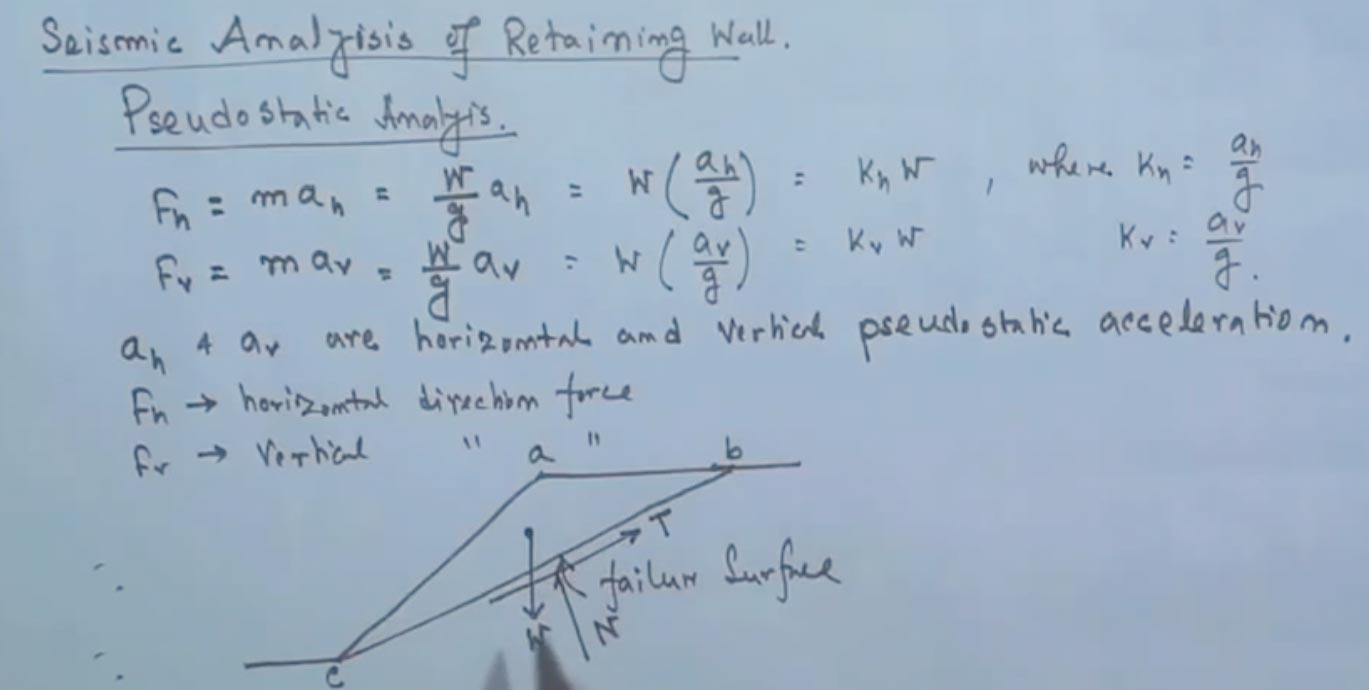 Seismic Analysis of Retaining Wall.
Pseudostatic Analysis.
Fh = m ah = W/g ah = W (ah/g) = Kh W , where Kh = ah/g
Fv = m av = W/g av = W (av/g) = Kv W Kv = av/g.
ah & av are horizontal and vertical pseudostatic acceleration.
Fh → horizontal direction force
Fv → vertical " "
a b
T
failure surface
W N
c